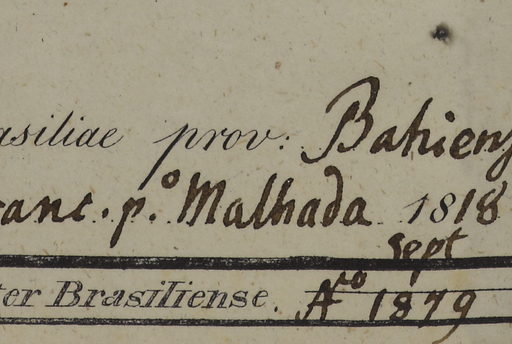 asiliae prov: Bahiens
ranc. p.º Malhada 1818
Sept
ter Brasiliense. Aº 1879